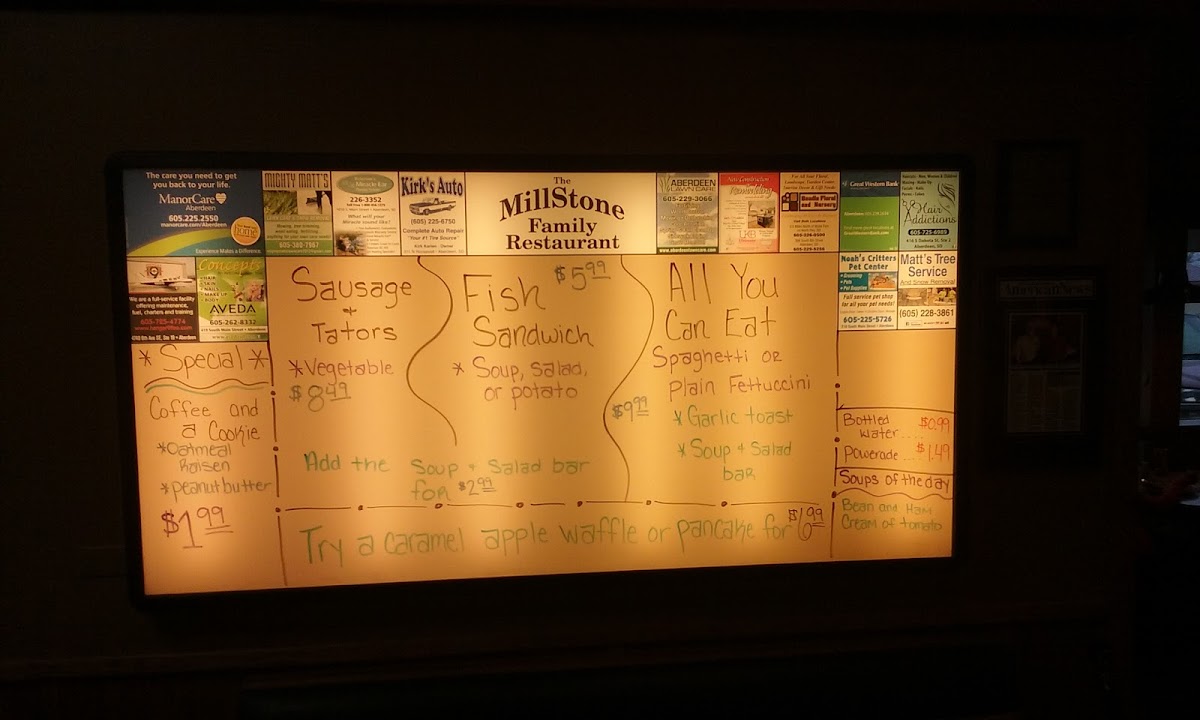 The care you need to get
you back to your life.
ManorCare
Aberdeen
605.225.2550
manorcare.com/Aberdeen
home
Experience Makes a Difference.
MIGHTY MATT'S
605-380-7987
Miracle Ear
226-3352
What will your
Miracle sound like?
Kirk's Auto
(605) 225-6750
Complete Auto Repair
"Your #1 Tire Source"
The
MillStone
Family
Restaurant
ABERDEEN
LAWN CARE
605-229-3066
New Construction
Remodeling
Beadle Floral
and Nursery
Great Western Bank
Hair
Addictions
605-725-6989
We are a full-service facility
offering maintenance,
fuel, charters and training
605-725-4774
Concepts
HAIR
SKIN
NAILS
MAKE UP
BODY
AVEDA
605-262-8332
Noah's Critters
Pet Center
Grooming
Pets
Pet Supplies
Full service pet shop
for all your pet needs!
605-225-5726
Matt's Tree
Service
And Snow Removal
(605) 228-3861
* Special *
Coffee and
a Cookie
*Oatmeal
Raisen
*peanutbutter
$1.99
Sausage
+
Tators
*Vegetable
$8.49
Fish $5.99
Sandwich
* Soup, Salad,
or potato
Add the Soup + Salad bar
for $2.99
All You
Can Eat
Spaghetti or
Plain Fettuccini
$9.99
* Garlic toast
* Soup + Salad
bar
Try a caramel apple waffle or pancake for $6.99
Bottled
Water.... $0.99
Powerade... $1.49
Soups of the day
Bean and Ham
Cream of tomato